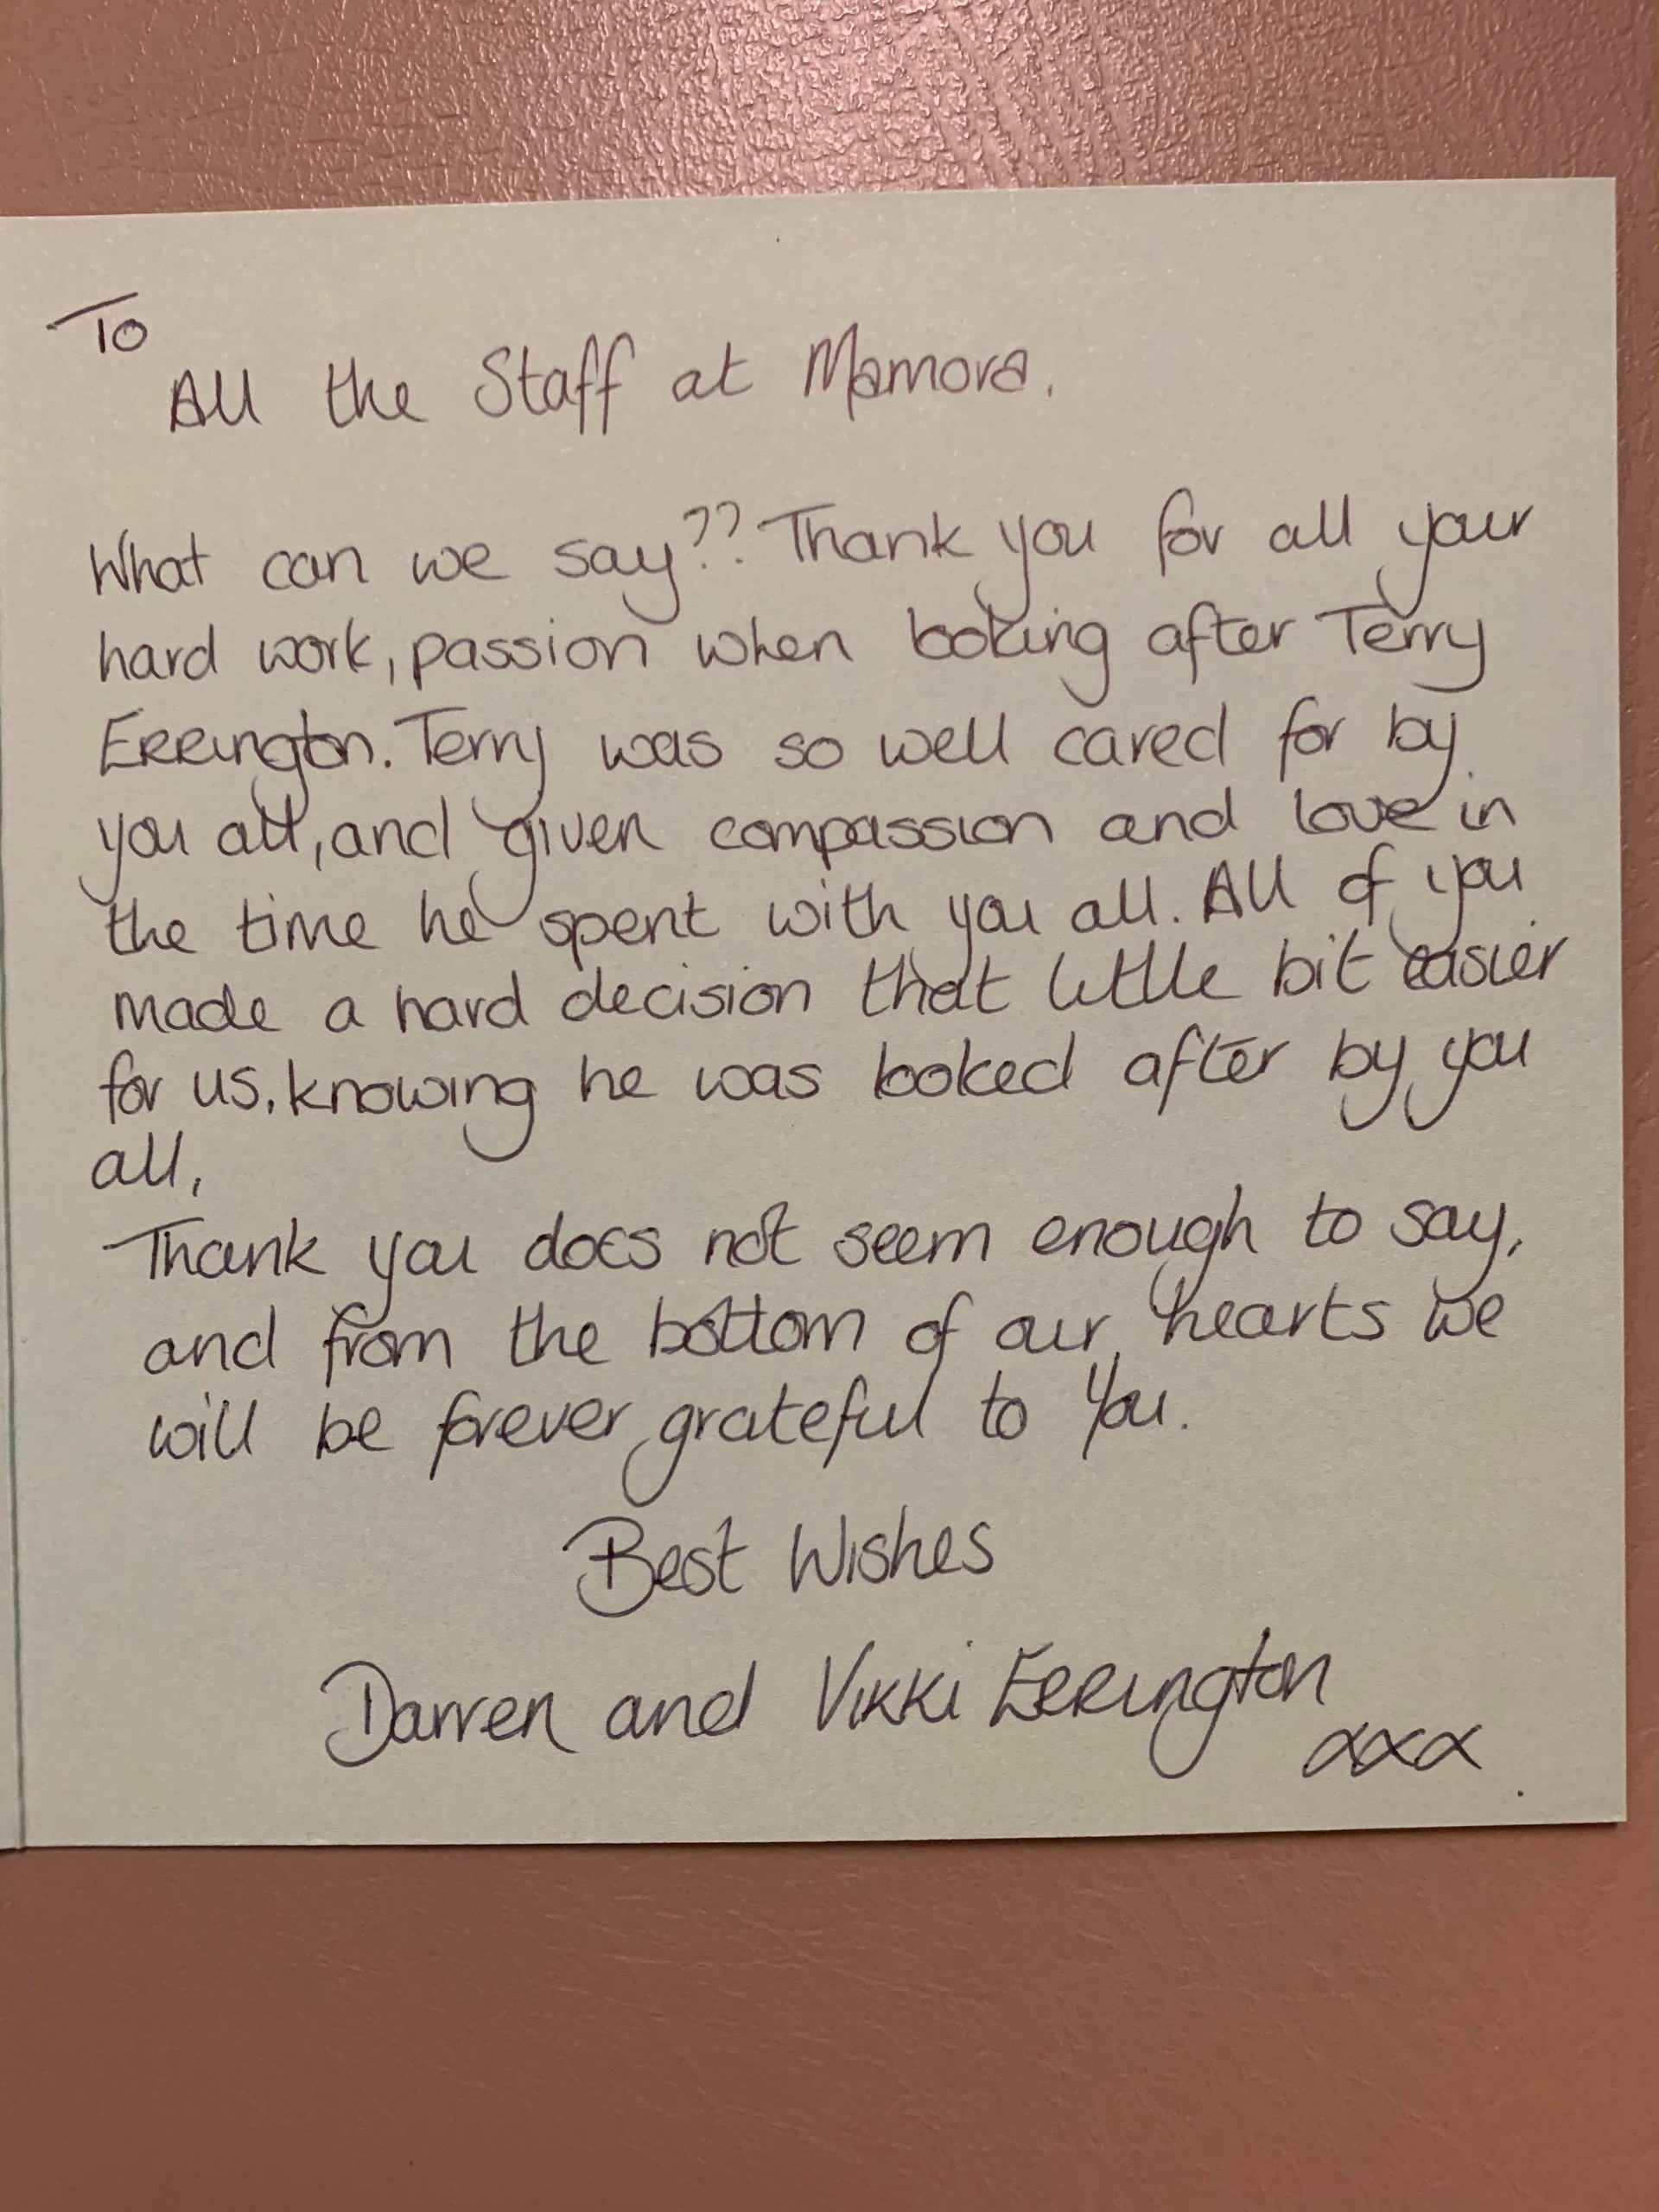 To
All the Staff at Mamora.
What can we say?? Thank you for all your
hard work, passion when looking after Terry
Errington. Terry was so well cared for by
you all, and given compassion and love in
the time he spent with you all. All of you
made a hard decision that little bit easier
for us, knowing he was looked after by you
all,
Thank you does not seem enough to say,
and from the bottom of our hearts we
will be forever grateful to You.
Best Wishes
Darren and Vikki Errington
xxx